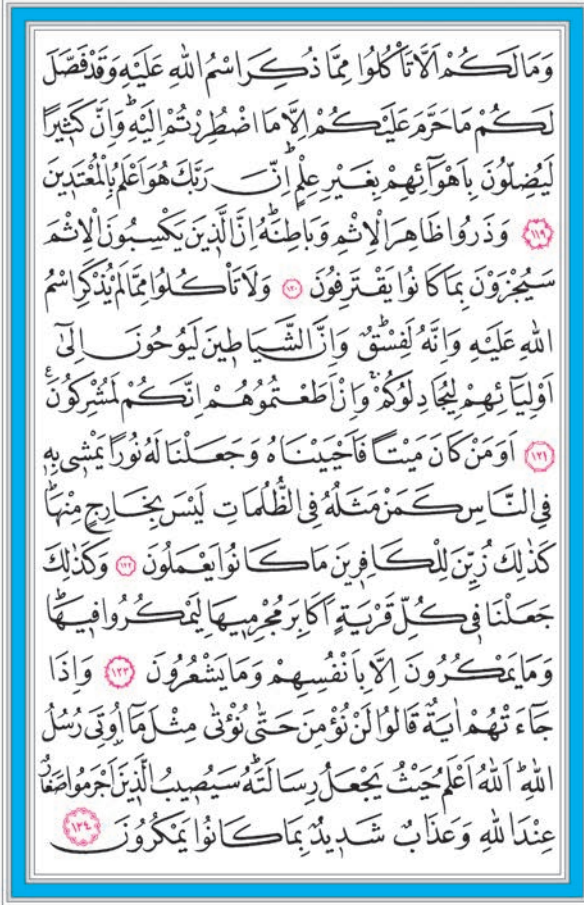 وَمَا لَكُمْ اَلَّا تَأْكُلُوا مِمَّا ذُكِرَ اسْمُ اللّٰهِ عَلَيْهِ وَقَدْ فَصَّلَ
لَكُمْ مَا حَرَّمَ عَلَيْكُمْ اِلَّا مَا اضْطُرِرْتُمْ اِلَيْهِۜ وَاِنَّ كَث۪يرًا
لَيُضِلُّونَ بِاَهْوَٓائِهِمْ بِغَيْرِ عِلْمٍۜ اِنَّ رَبَّكَ هُوَ اَعْلَمُ بِالْمُعْتَد۪ينَ
﴿١١٩﴾ وَذَرُوا ظَاهِرَ الْاِثْمِ وَبَاطِنَهُۜ اِنَّ الَّذ۪ينَ يَكْسِبُونَ الْاِثْمَ
سَيُجْزَوْنَ بِمَا كَانُوا يَقْتَرِفُونَ ﴿١٢٠﴾ وَلَا تَأْكُلُوا مِمَّا لَمْ يُذْكَرِ اسْمُ
اللّٰهِ عَلَيْهِ وَاِنَّهُ لَفِسْقٌۜ وَاِنَّ الشَّيَاط۪ينَ لَيُوحُونَ اِلٰٓى
اَوْلِيَٓائِهِمْ لِيُجَادِلُوكُمْۚ وَاِنْ اَطَعْتُمُوهُمْ اِنَّكُمْ لَمُشْرِكُونَ۟
﴿١٢١﴾ اَوَمَنْ كَانَ مَيْتًا فَاَحْيَيْنَاهُ وَجَعَلْنَا لَهُ نُورًا يَمْش۪ي بِه۪
فِي النَّاسِ كَمَنْ مَثَلُهُ فِي الظُّلُمَاتِ لَيْسَ بِخَارِجٍ مِنْهَاۜ
كَذٰلِكَ زُيِّنَ لِلْكَافِر۪ينَ مَا كَانُوا يَعْمَلُونَ ﴿١٢٢﴾ وَكَذٰلِكَ
جَعَلْنَا ف۪ي كُلِّ قَرْيَةٍ اَكَابِرَ مُجْرِم۪يهَا لِيَمْكُرُوا ف۪يهَاۜ
وَمَا يَمْكُرُونَ اِلَّا بِاَنْفُسِهِمْ وَمَا يَشْعُرُونَ ﴿١٢٣﴾ وَاِذَا
جَٓاءَتْهُمْ اٰيَةٌ قَالُوا لَنْ نُؤْمِنَ حَتّٰى نُؤْتٰى مِثْلَ مَٓا اُو۫تِيَ رُسُلُ
اللّٰهِۜ اَللّٰهُ اَعْلَمُ حَيْثُ يَجْعَلُ رِسَالَتَهُۜ سَيُص۪يبُ الَّذ۪ينَ اَجْرَمُوا صَغَارٌ
عِنْدَ اللّٰهِ وَعَذَابٌ شَد۪يدٌ بِمَا كَانُوا يَمْكُرُونَ ﴿١٢٤﴾